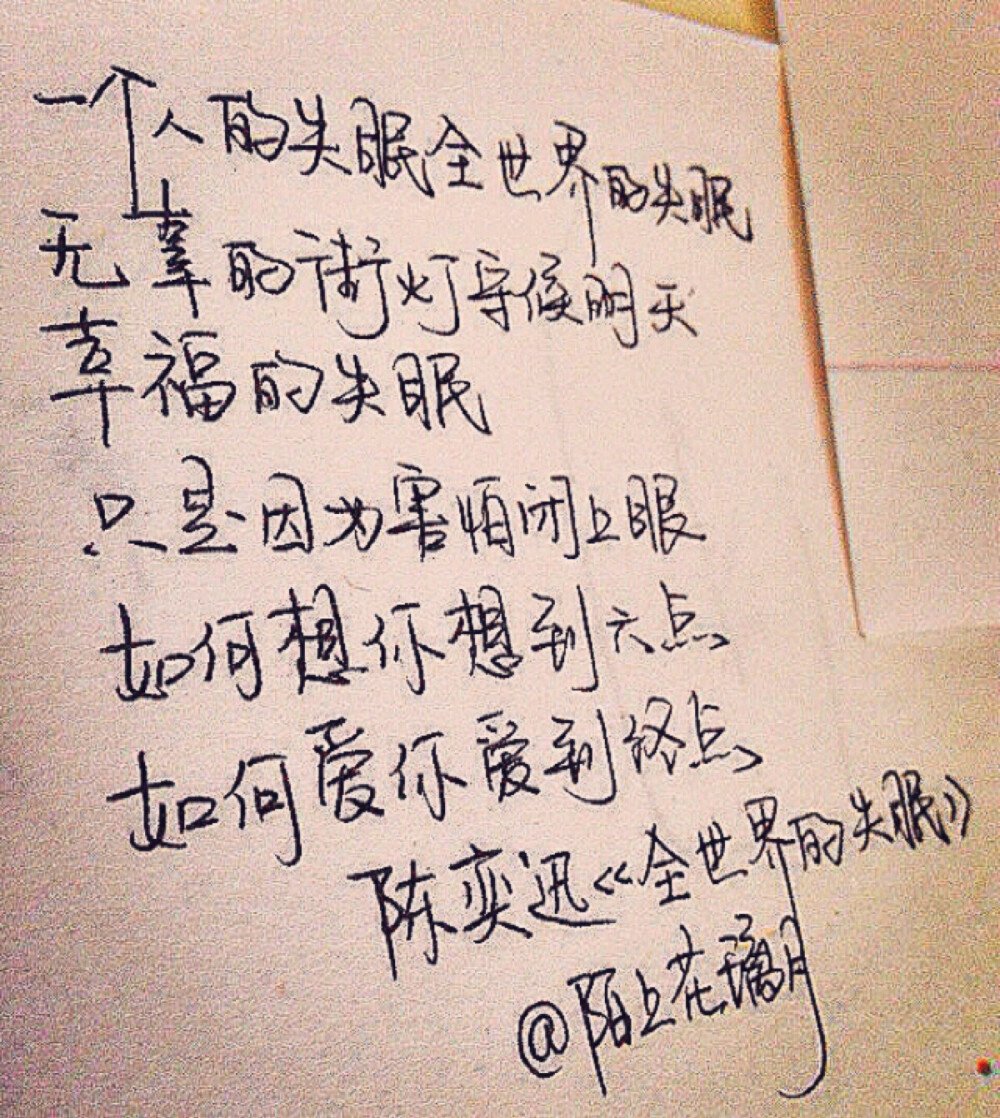 一个人的失眠全世界的失眠
无辜的街灯守候明天
幸福的失眠
只是因为害怕闭上眼
如何想你想到六点
如何爱你爱到终点
陈奕迅《全世界的失眠》
@陌上花璃月